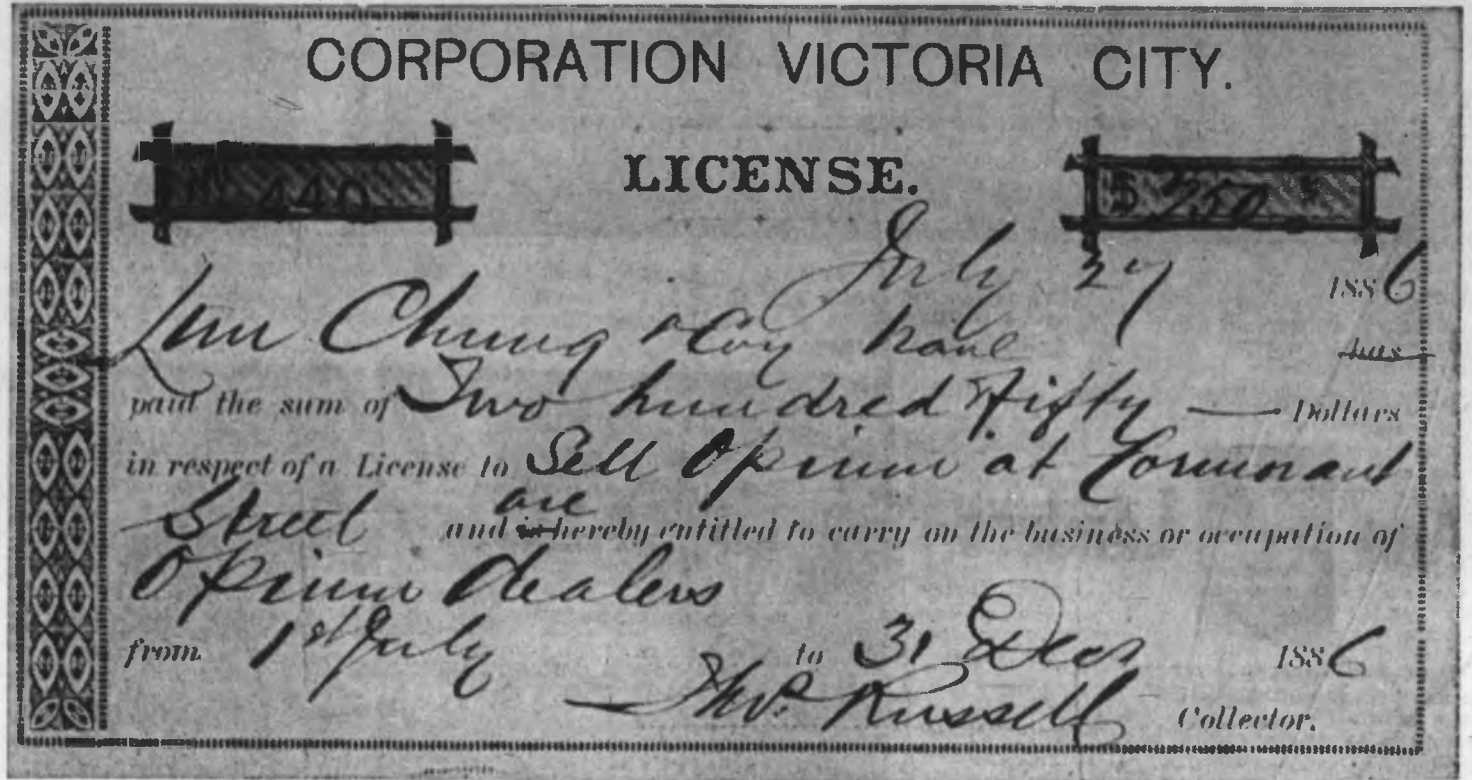 CORPORATION VICTORIA CITY.
440 LICENSE. $ 250
July 27 1886
Chung & Coy have has
paid the sum of Two hundred Fifty — Dollars
in respect of a License to Sell Opium at Cormorant
Street and is are hereby entitled to carry on the business or occupation of
Opium dealers
from 1st July to 31 Decr 1886
Thos. Russell Collector.